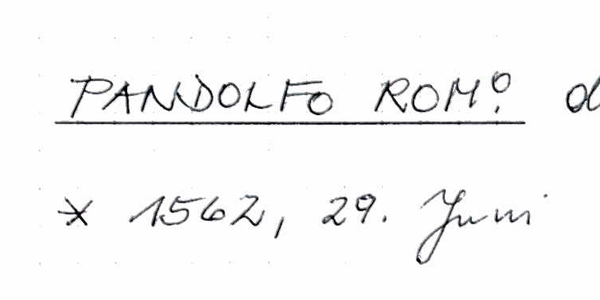 PANDOLFO ROMº. d
* 1562, 29. Juni